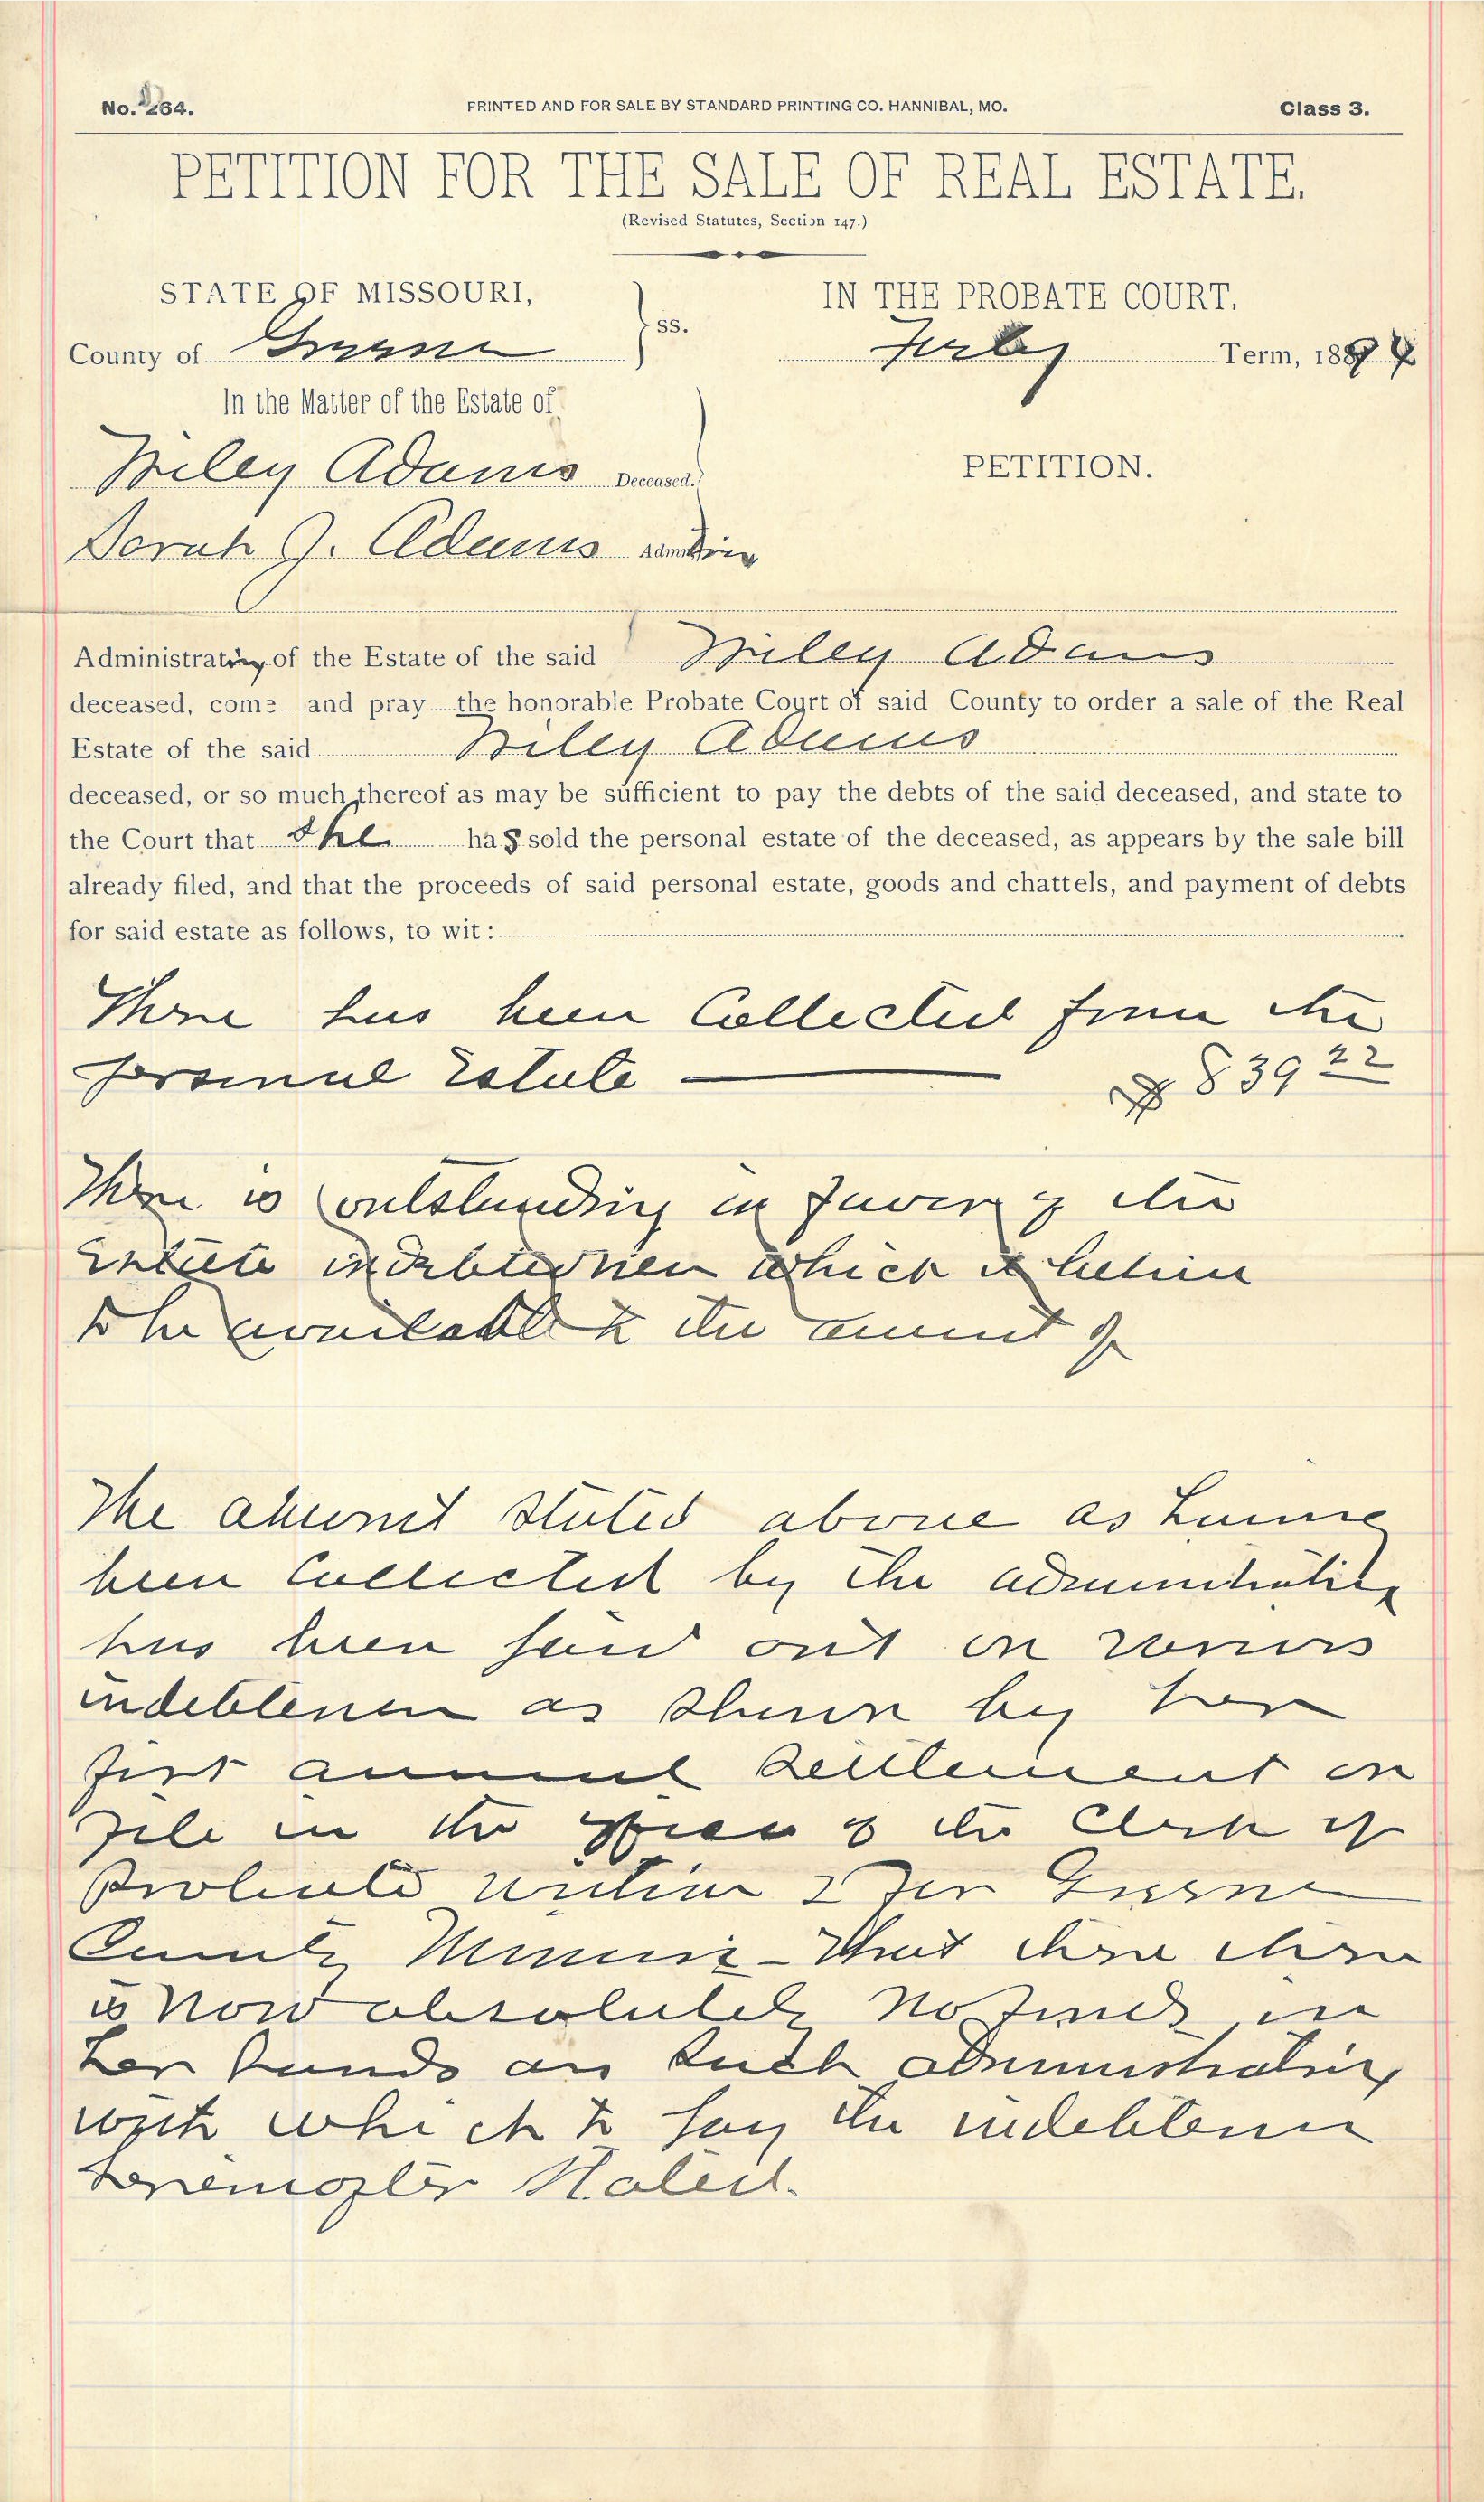 No. 264. PRINTED AND FOR SALE BY STANDARD PRINTING CO. HANNIBAL, MO. Class 3.
PETITION FOR THE SALE OF REAL ESTATE.
(Revised Statutes, Section 147.)
STATE OF MISSOURI,
County of Greene
ss.
In the Matter of the Estate of
Wiley Adams Deceased.
Sarah J. Adams Admtrix
IN THE PROBATE COURT.
Term, 1894
PETITION.
Administratrix of the Estate of the said Wiley Adams
deceased, come and pray the honorable Probate Court of said County to order a sale of the Real
Estate of the said Wiley Adams
deceased, or so much thereof as may be sufficient to pay the debts of the said deceased, and state to
the Court that she has sold the personal estate of the deceased, as appears by the sale bill
already filed, and that the proceeds of said personal estate, goods and chattels, and payment of debts
for said estate as follows, to wit:
There has been Collected from the
personal Estate $839 22
There is outstanding in favor of the
Estate indebtedness which is
to be available to the amount of
The amount stated above as having
been Collected by the administratrix
has been paid out on various
indebtedness as shown by her
first annual settlement on
file in the office of the Clerk of
Probate within & for Greene
County Missouri - That there
is now absolutely no funds in
her hands as such administratrix
with which to pay the indebtedness
hereinafter Stated.